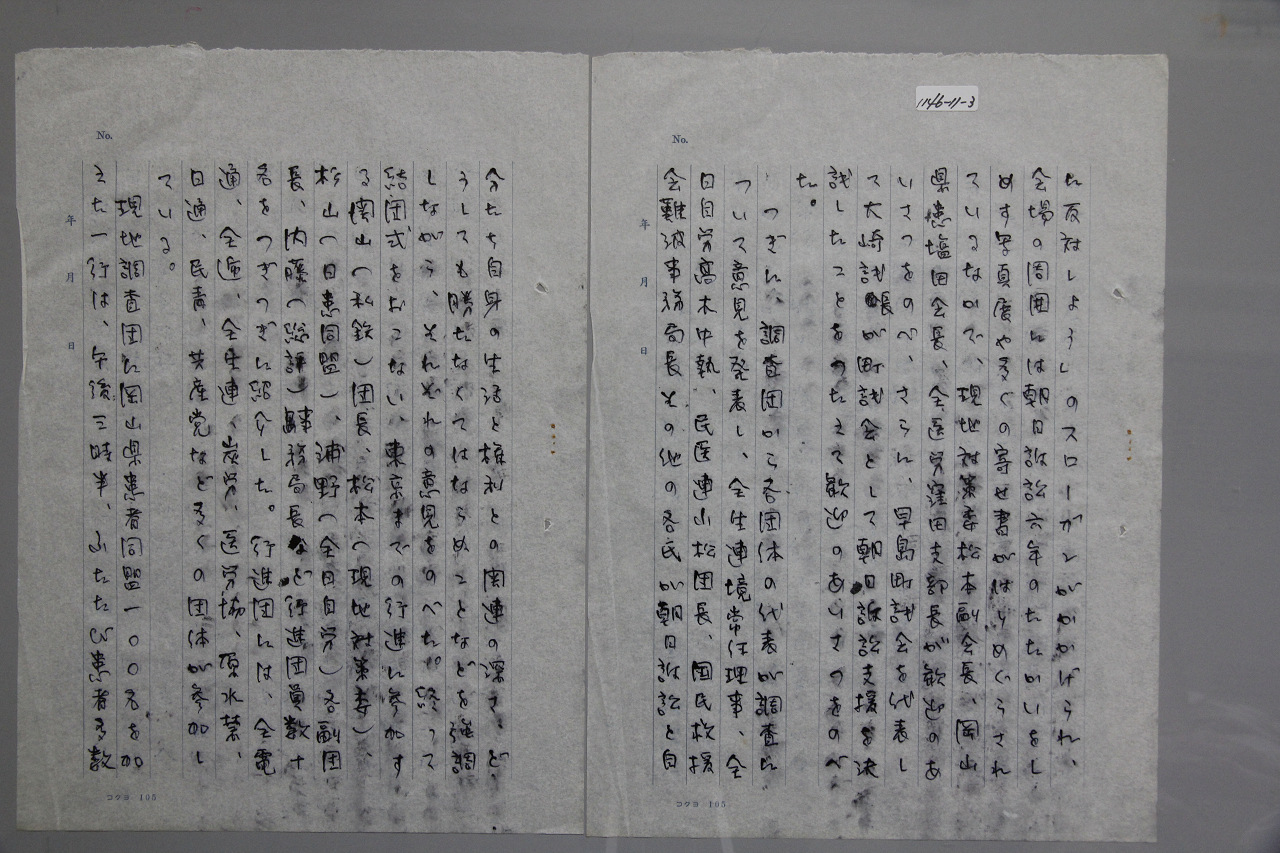 1146-11-3
No.
年 月 日
た反対しよう」のスローガンがかかげられ、
会場の周囲には朝日訴訟六年のたたかいをし
めす写真展や多くの寄せ書がはりめぐらされ
ているなかで、現地対策委松本副会長、岡山
県患塩田会長、全医労窪田支部長が歓迎のあ
いさつをのべ、さらに、早島町議会を代表し
て大崎議長が町議会として朝日訴訟支援を決
議したことをつたえて歓迎のあいさつをのべ
た。
つぎに、調査団から各団体の代表が調査に
ついて意見を発表し、全生連境常任理事、全
日自労高木中執、民医連小松団長、国民救援
会難波事務局長その他の各氏が朝日訴訟と自
コクヨ 105
No.
年 月 日
分たち自身の生活と権利との関連の深さ、ど
うしても勝たなくてはならぬことなどを強調
しながら、それぞれの意見をのべた。終って
結団式をおこない、東京までの行進に参加す
る関山(私鉄)団長、松本(現地対策委)、
杉山(日患同盟)、浦野(全日自労)各副団
長、内藤(総評)事務局長など行進団員数十
名をつぎつぎに紹介した。行進団には、全電
通、全逓、全生連、炭労、医労協、原水禁、
日通、民青、共産党など多くの団体が参加し
ている。
現地調査団に岡山県患者同盟一〇〇名を加
えた一行は、午後三時半、ふたたび患者多数
コクヨ 105